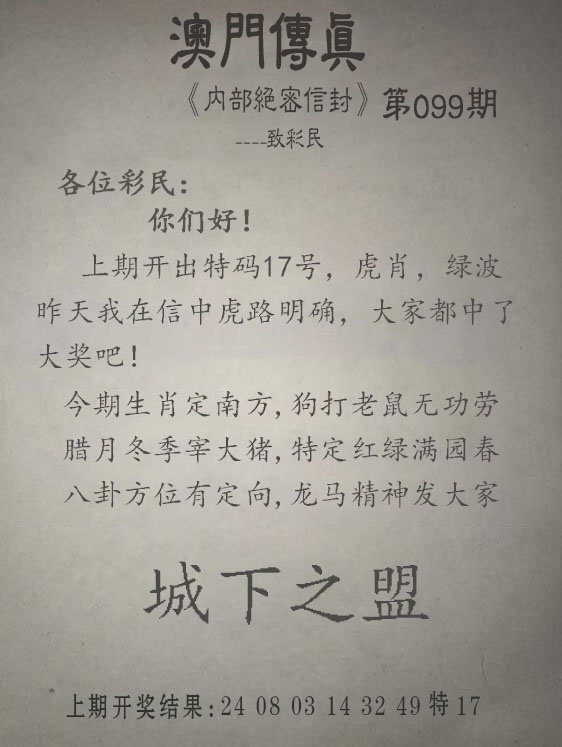 澳門傳眞
《内部絕密信封》第099期
----致彩民
各位彩民：
你们好！
上期开出特码17号，虎肖，绿波
昨天我在信中虎路明确，大家都中了
大奖吧！
今期生肖定南方,狗打老鼠无功劳
腊月冬季宰大猪,特定红绿满园春
八卦方位有定向,龙马精神发大家
城下之盟
上期开奖结果:24 08 03 14 32 49 特 17